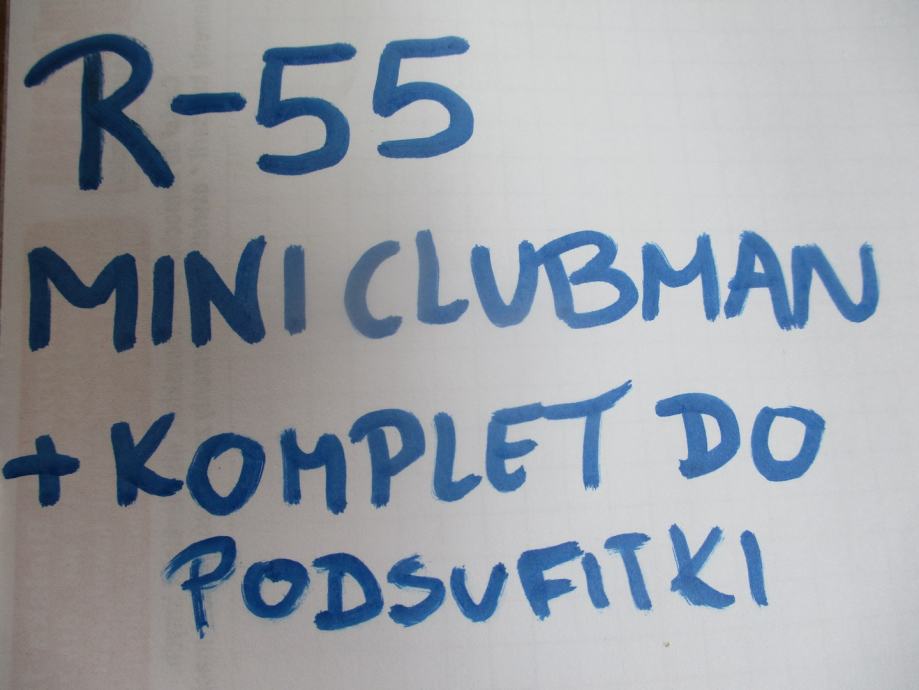 R-55
MINI CLUBMAN
+ KOMPLET DO
PODSUFITKI